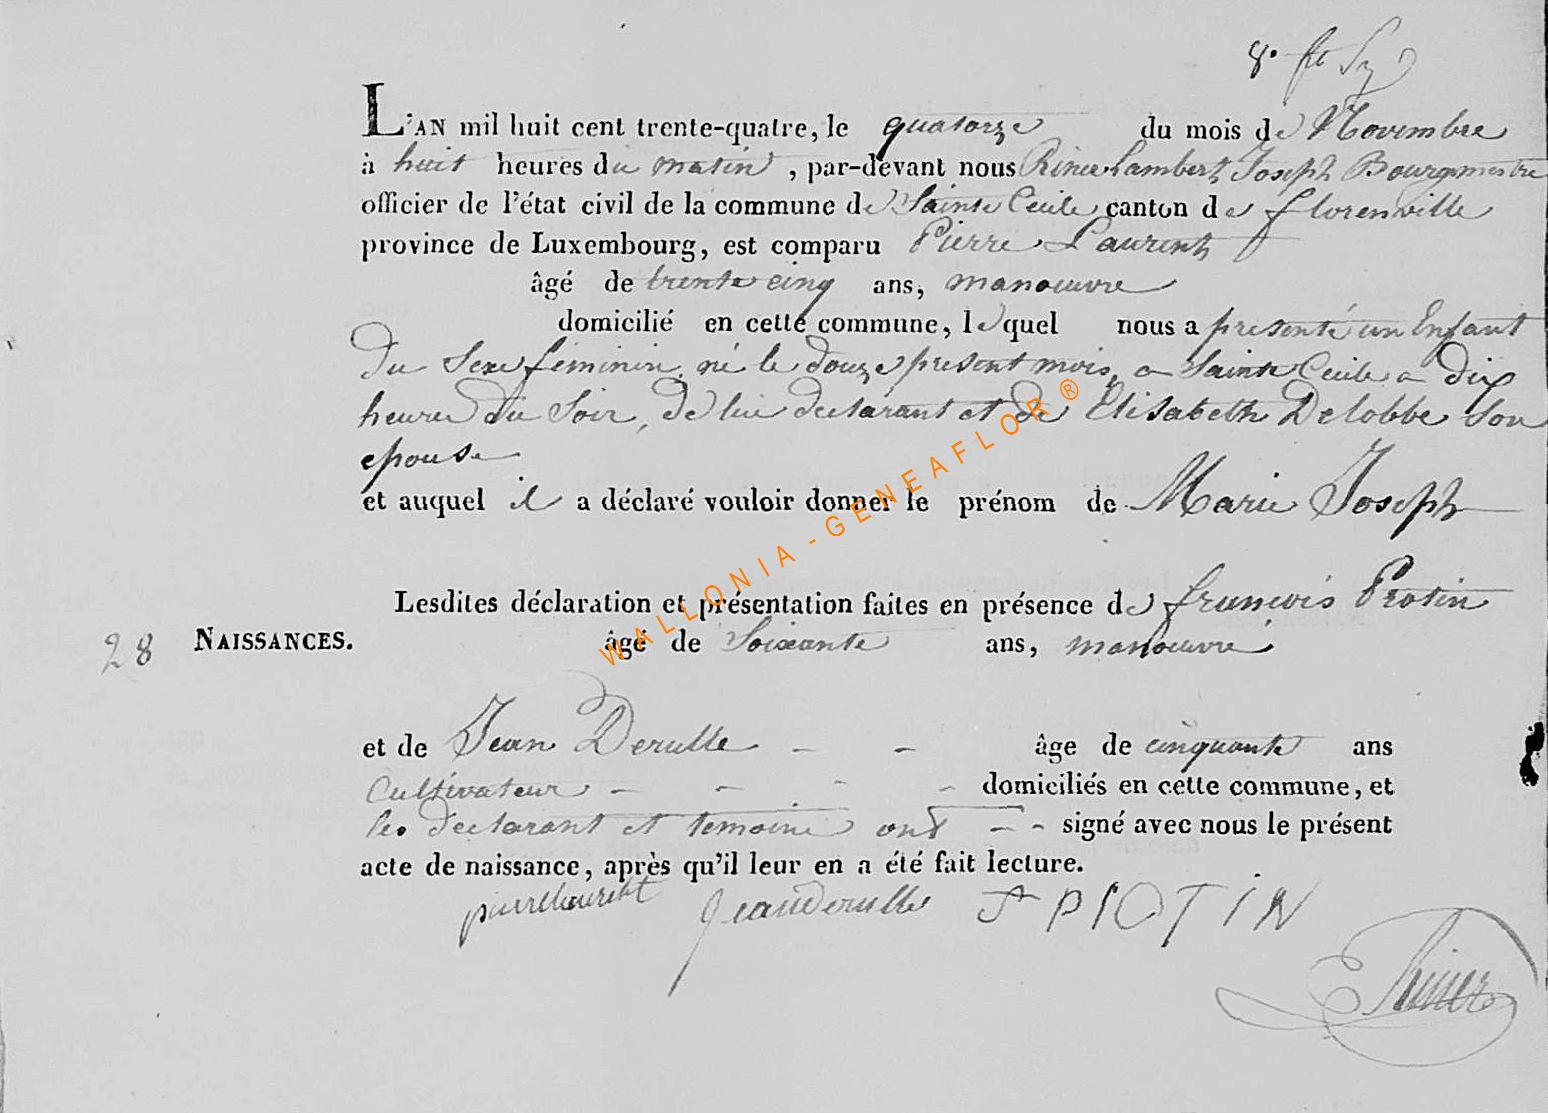 8.
L'AN mil huit cent trente-quatre, le quatorze du mois de Novembre
à huit heures du matin, par-devant nous Lambert Joseph Bourgmestre
officier de l'état civil de la commune de Sainte Cecile canton de florenville
province de Luxembourg, est comparu Pierre Laurent
âgé de trente cinq ans, manoeuvre
domicilié en cette commune, lequel nous a presenté un Enfant
du Sexe féminin, né le douze present mois, a Sainte Cecile a dix
heures du Soir, de lui declarant et de Elisabeth Delobbe Son
epouse
et auquel il a déclaré vouloir donner le prénom de Marie Joseph
Lesdites déclaration et présentation faites en présence de francois Protin
28 NAISSANCES. âgé de Soixante ans, manoeuvre
et de Jean Derulle - - âge de cinquante ans
Cultivateur - - - - domiciliés en cette commune, et
les declarant et temoins ont - - signé avec nous le présent
acte de naissance, après qu'il leur en a été fait lecture.
jeanderulle PIOTIN
WALLONIA - GENEAFLOR ®